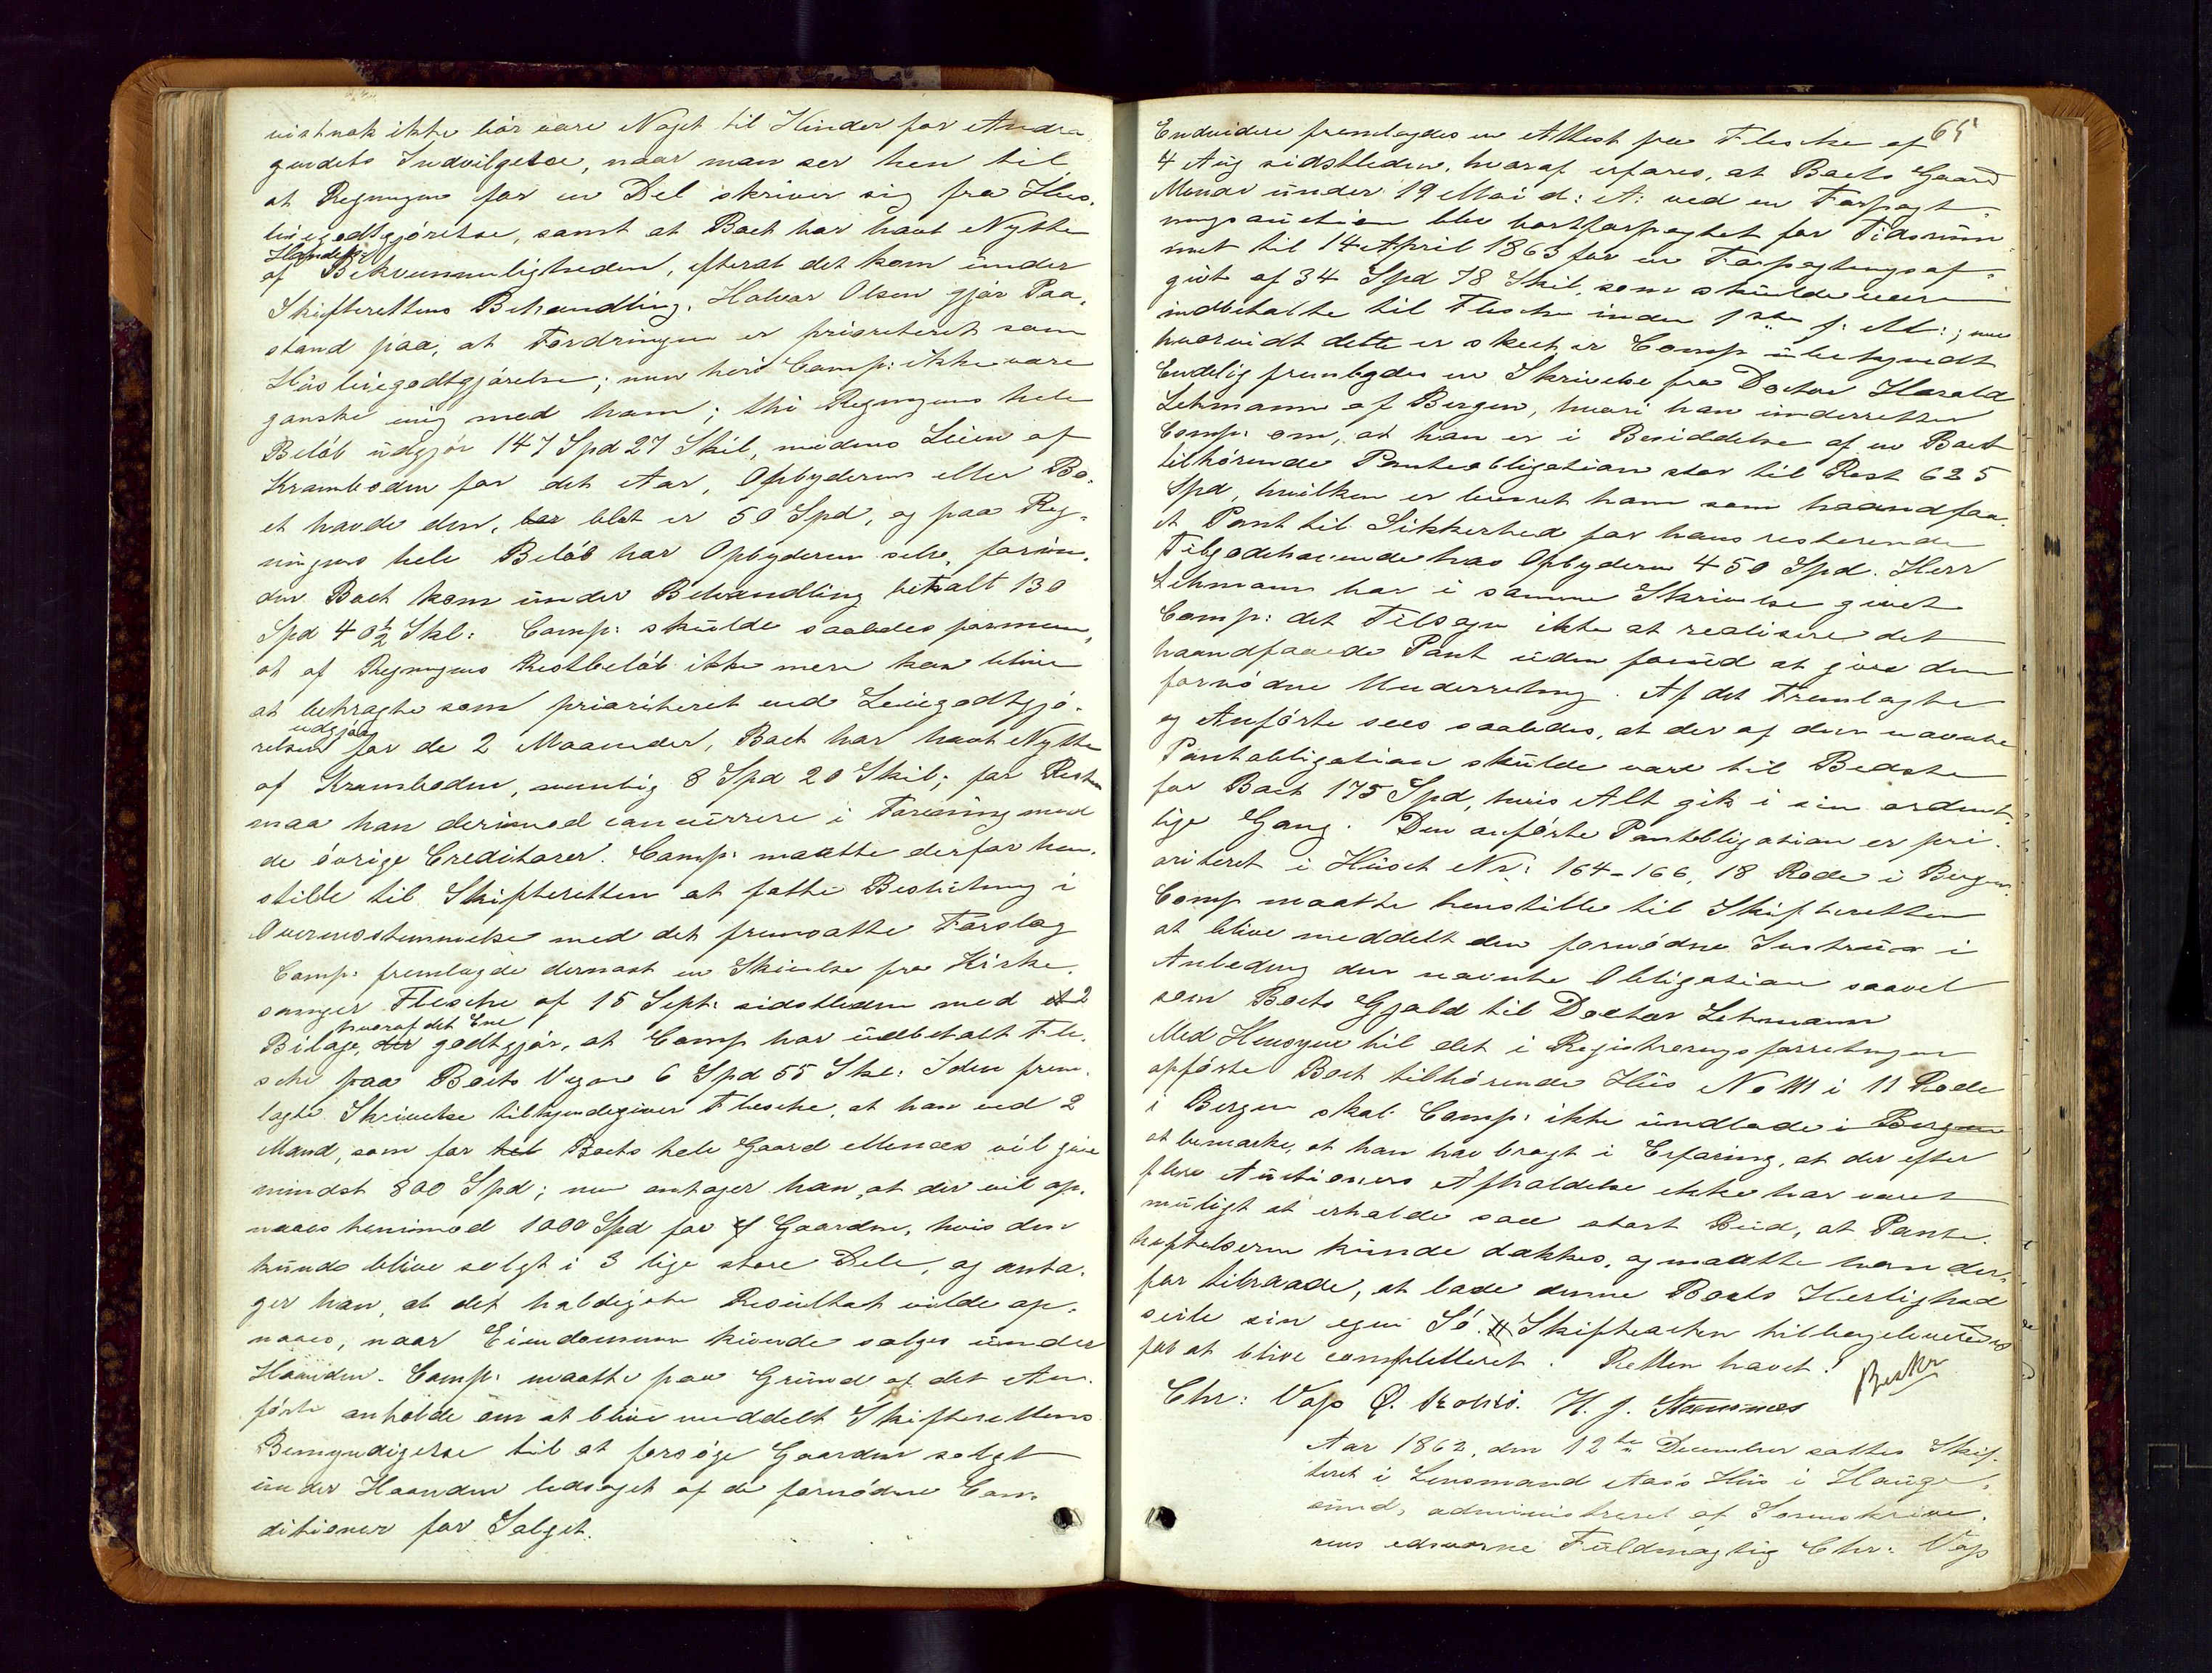 vistnok ikke bör være Noget til Hinder for Andra
gendets Indvilgelse, naar man ser hen til
at Regningen for en Del skriver sig fra Hus-
leiegodtgjörelse, samt at Boet har havt Nytte
af Handels Bekvemmeligheden, efterat det kom under
Skifterettens Behandling. Halvor Olsen gjör Paa-
stand paa, at Fordringen er prioriteret som
Husleiegodtgjörelse; men heri Comp: ikke være
ganske enig med ham; thi Regningens hele
Belöb udgjör 147 Spd 27 Skil, medens Leien af
Kramboden for det Aar, Opbyderen eller Bo-
et havde den, blot er 50 Spd, og paa Reg-
ningens hele Belöb har Opbyderen selv, forin-
den Boet kom under Behandling betalt 130
Spd 40½ Skl: Comp: skulde saaledes formene,
at af Regningens Restbelöb ikke mere kan blive
at betragte som prioriteret end Leiegodtgjö-
relsen udgjör for de 2 Maaneder, Boet har havt Nytte
af Kramboden, nemlig 8 Spd 20 Skil; for Resten
maa han derimod concurrere i Forening med
de övrige Creditorer. Comp: maatte derfor hen-
stille til Skifteretten at fatte Beslutning i
Overensstemmelse med det fremsatte Forslag
Comp: fremlagde dernæst en Skrivelse fra Kirke-
sanger Flesche af 15 Sept: sidstleden med 2
Bilage, hvoraf det Ene godtgjör, at Comp har udbetalt Fle-
sche paa Boets Vegne 6 Spd 55 Skl: I den frem-
lagte Skrivelse tilkjendegiver Flesche, at han ved 2
Mand, som for Boets hele Gaard Menæs vil give
mindst 800 Spd; men antager han, at der vil op-
naaes henimod 1000 Spd for Gaarden, hvis den
kunde blive solgt i 3 lige store Dele, og anta-
ger han, at det heldigste Resultat vilde op-
naaes, naar Eiendommen kunde sælges under
Haanden. Comp: maatte paa Grund af det An-
förte anholde om at blive meddelt Skifterettens
Bemyndigelse til at forsöge Gaarden solgt
under Haanden ledsaget af de fornödne Con-
ditioner for Salget.
65
Endvidere fremlagdes en Attest fra Flesche af
4 Aug sidstleden, hvoraf erfares, at Boets Gaard
Menæs under 19 Mai d: A: ved en Forpagt-
ningsauction blev bortforpagtet for Tidsrum-
met til 14 April 1863 for en Forpagtningsaf-
gift af 34 Spd 78 Skil, som skulde være
indbetalte til Flesche inden 1ste f: M:; men
hvorvidt dette er skeet er Comp ubekjendt
Endelig fremlagdes en Skrivelse fra Doctor Harald
Lehmann af Bergen, hvori han underretter
Comp: om, at han er i Besiddelse af en Boet
tilhörende Panteobligation stor til Rest 625
Spd, hvilken er leveret ham som haandfaa-
et Pant til Sikkerhed for hans resterende
Tilgodehavende hos Opbyderen 450 Spd. Herr
Lehmann har i samme Skrivelse givet
Comp: det Tilsagn ikke at realisere det
haandfaaede Pant uden forud at give den
fornödne Underretning. Af det Fremlagte
og Anförte sees saaledes, at der af den nævnte
Pantobligation skulde være til Bedste
for Boet 175 Spd, hvis Alt gik i sin ordent-
lige Gang. Den anförte Pantobligation er pri-
oriteret i Huset No: 164-166, 18 Rode i Bergen.
Comp maatte henstille til Skifteretten
at blive meddelt den fornödne Instrux i
Anledning den nævnte Obligation saavel
som Boets Gjæld til Doctor Lehmann
Med Hensyn til det i Registreringsforretningen
opförte Boet tilhörende Hus No 111 i 11 Rode
i Bergen skal Comp: ikke undlade i Bergen
at bemærke, at han har bragt i Erfaring, at der efter
flere Auctioners Afholdelse ikke har været
muligt at erholde saa stort Bud, at Pante-
heftelserne kunde dækkes, og maatte han der-
for tilraade, at lade denne Boets Herlighed
seile sin egen Sö. Skifteacten tilbageleveredes
for at blive completteret. Retten hævet!
Chr: Vogs H. J.
Aar 1862, den 12te December sattes Skif-
teret i Lensmand Aas's Hus i Hauge-
sund, administreret af Sorenskrive-
rens edsvorne Fuldmægtig Chr: Vogs